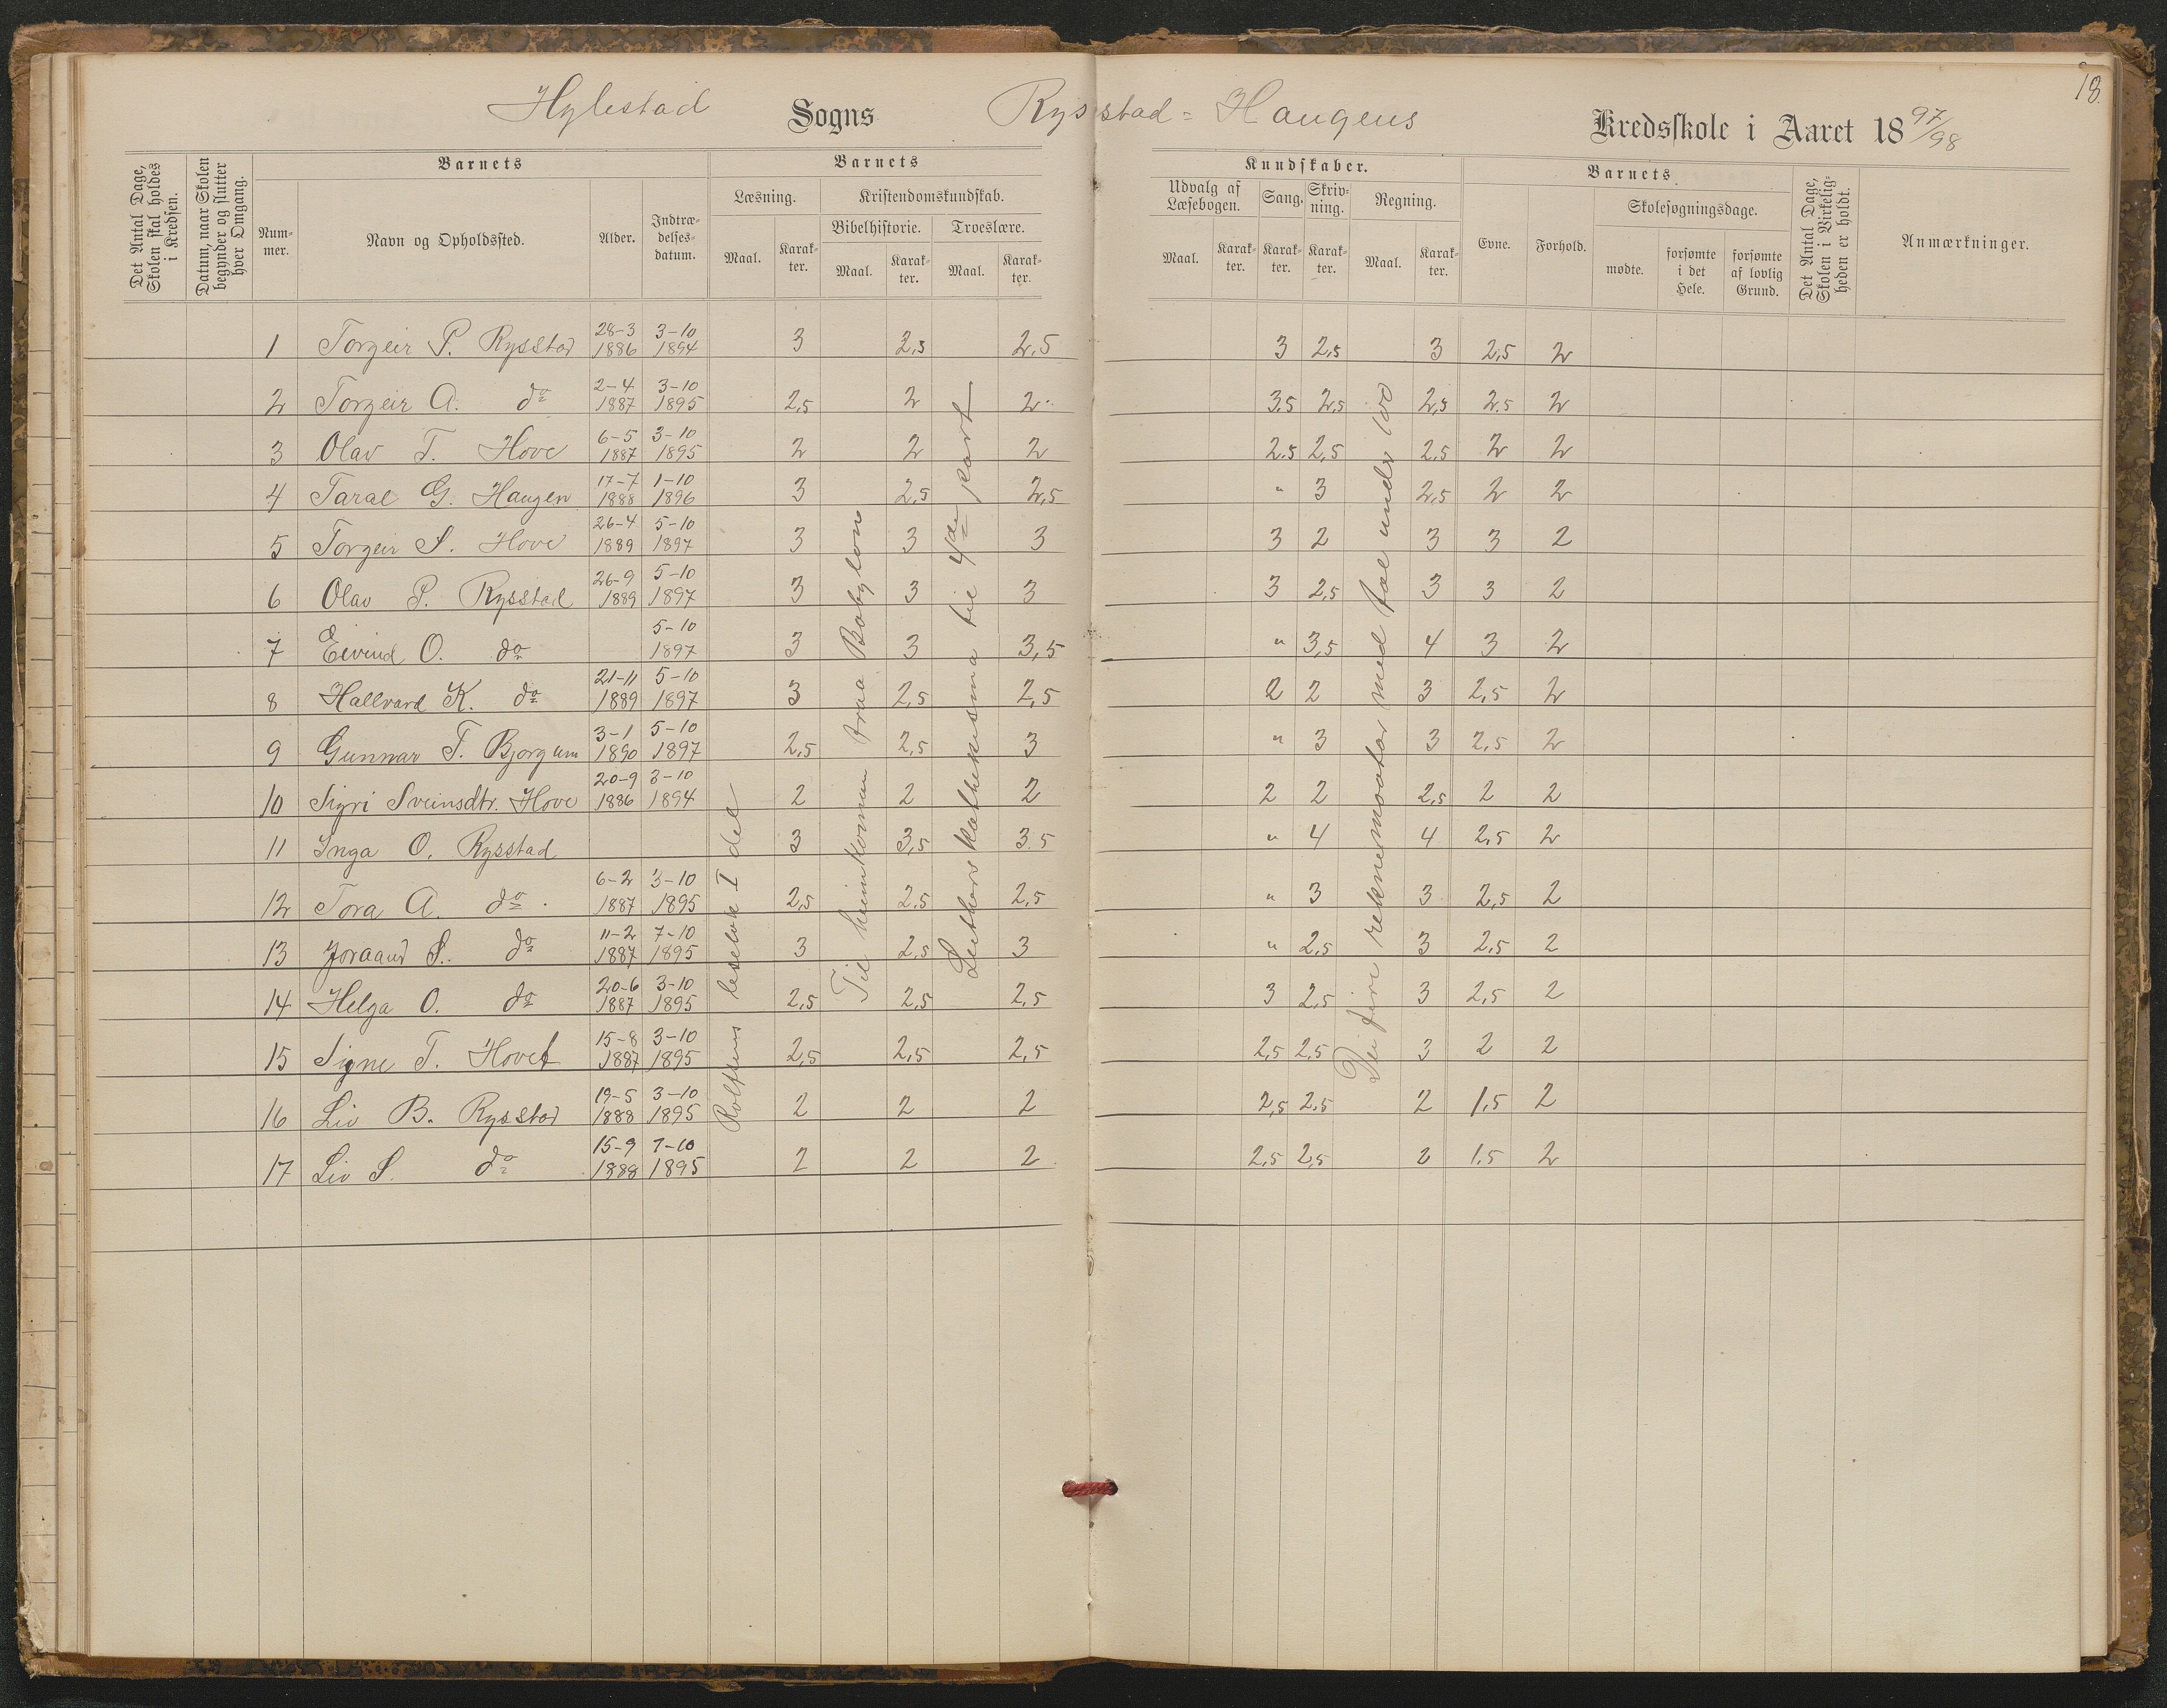 18
Hylestad Sogns Rysstad = Haugens Kredsskole i Aaret 1897/98
Det Antal Dage, Skolen skal holdes i Kredsen.
Datum, naar Skolen begynder og slutter hver Omgang.
Barnets
Nummer.
Navn og Opholdssted.
Alder.
Indtrædelsesdatum.
Barnets
Læsning.
Maal.
Karakter.
Kristendomskundskab.
Bibelhistorie.
Maal.
Karakter.
Troeslære.
Maal.
Karakter.
Kundskaber.
Udvalg af Læsebogen.
Maal.
Karakter.
Sang.
Karakter.
Skrivning.
Karakter.
Regning.
Maal.
Karakter.
Barnets
Evne.
Forhold.
Skolesøgningsdage.
mødte.
forsømte i det Hele.
forsømte af lovlig Grund.
Det Antal Dage, Skolen i Virkeligheden er holdt.
Anmærkninger.
1 Torgeir P. Rysstad 28-3 1886 3-10 1894 3 2,5 2,5 3 2,5 3 2,5 2
2 Torgeir A. do 2-4 1887 3-10 1895 2,5 2 2 3,5 2,5 2,5 2,5 2
3 Olav T. Hove 6-5 1887 3-10 1895 2 2 2 2,5 2,5 2,5 2 2
4 Taral G. Haugen 17-7 1888 1-10 1896 3 2,5 2,5 " 3 2,5 2 2
5 Torgeir S. Hove 26-4 1889 5-10 1897 3 3 3 3 2 3 3 2
6 Olav P. Rysstad 26-9 1889 5-10 1897 3 3 3 3 2,5 3 3 2
7 Eivind O. do 5-10 1897 3 3 3,5 " 3,5 4 3 2
8 Hallvard K. do 21-11 1889 5-10 1897 3 2,5 2,5 2 2 3 2,5 2
9 Gunnar T. Bjorgum 3-1 1890 5-10 1897 2,5 2,5 3 " 3 3 2,5 2
10 Sigri Sveinsdtr. Hove 20-9 1886 3-10 1894 2 2 2 2 2 2,5 2 2
11 Inga O. Rysstad 3 3,5 3.5 " 4 4 2,5 2
12 Tora A. do 6-2 1887 3-10 1895 2,5 2,5 2,5 " 3 3 2,5 2
13 Joraand S. do 11-2 1887 7-10 1895 3 2,5 3 " 2,5 3 2,5 2
14 Helga O. do 20-6 1887 3-10 1895 2,5 2,5 2,5 3 2,5 3 2,5 2
15 Signe T. Hovet 15-8 1887 3-10 1895 2,5 2,5 2,5 2,5 2,5 3 2 2
16 Liv B. Rysstad 19-5 1888 3-10 1895 2 2 2 2,5 2,5 2 1,5 2
17 Liv S. do 15-9 1888 7-10 1895 2 2 2 2,5 2,5 2 1.5 2
Rolfsens lesebok I del
Til heimkoman fraa Babylon
Luthers kathekisma til 4de part
Dei fire reknemaatar med tal under 100